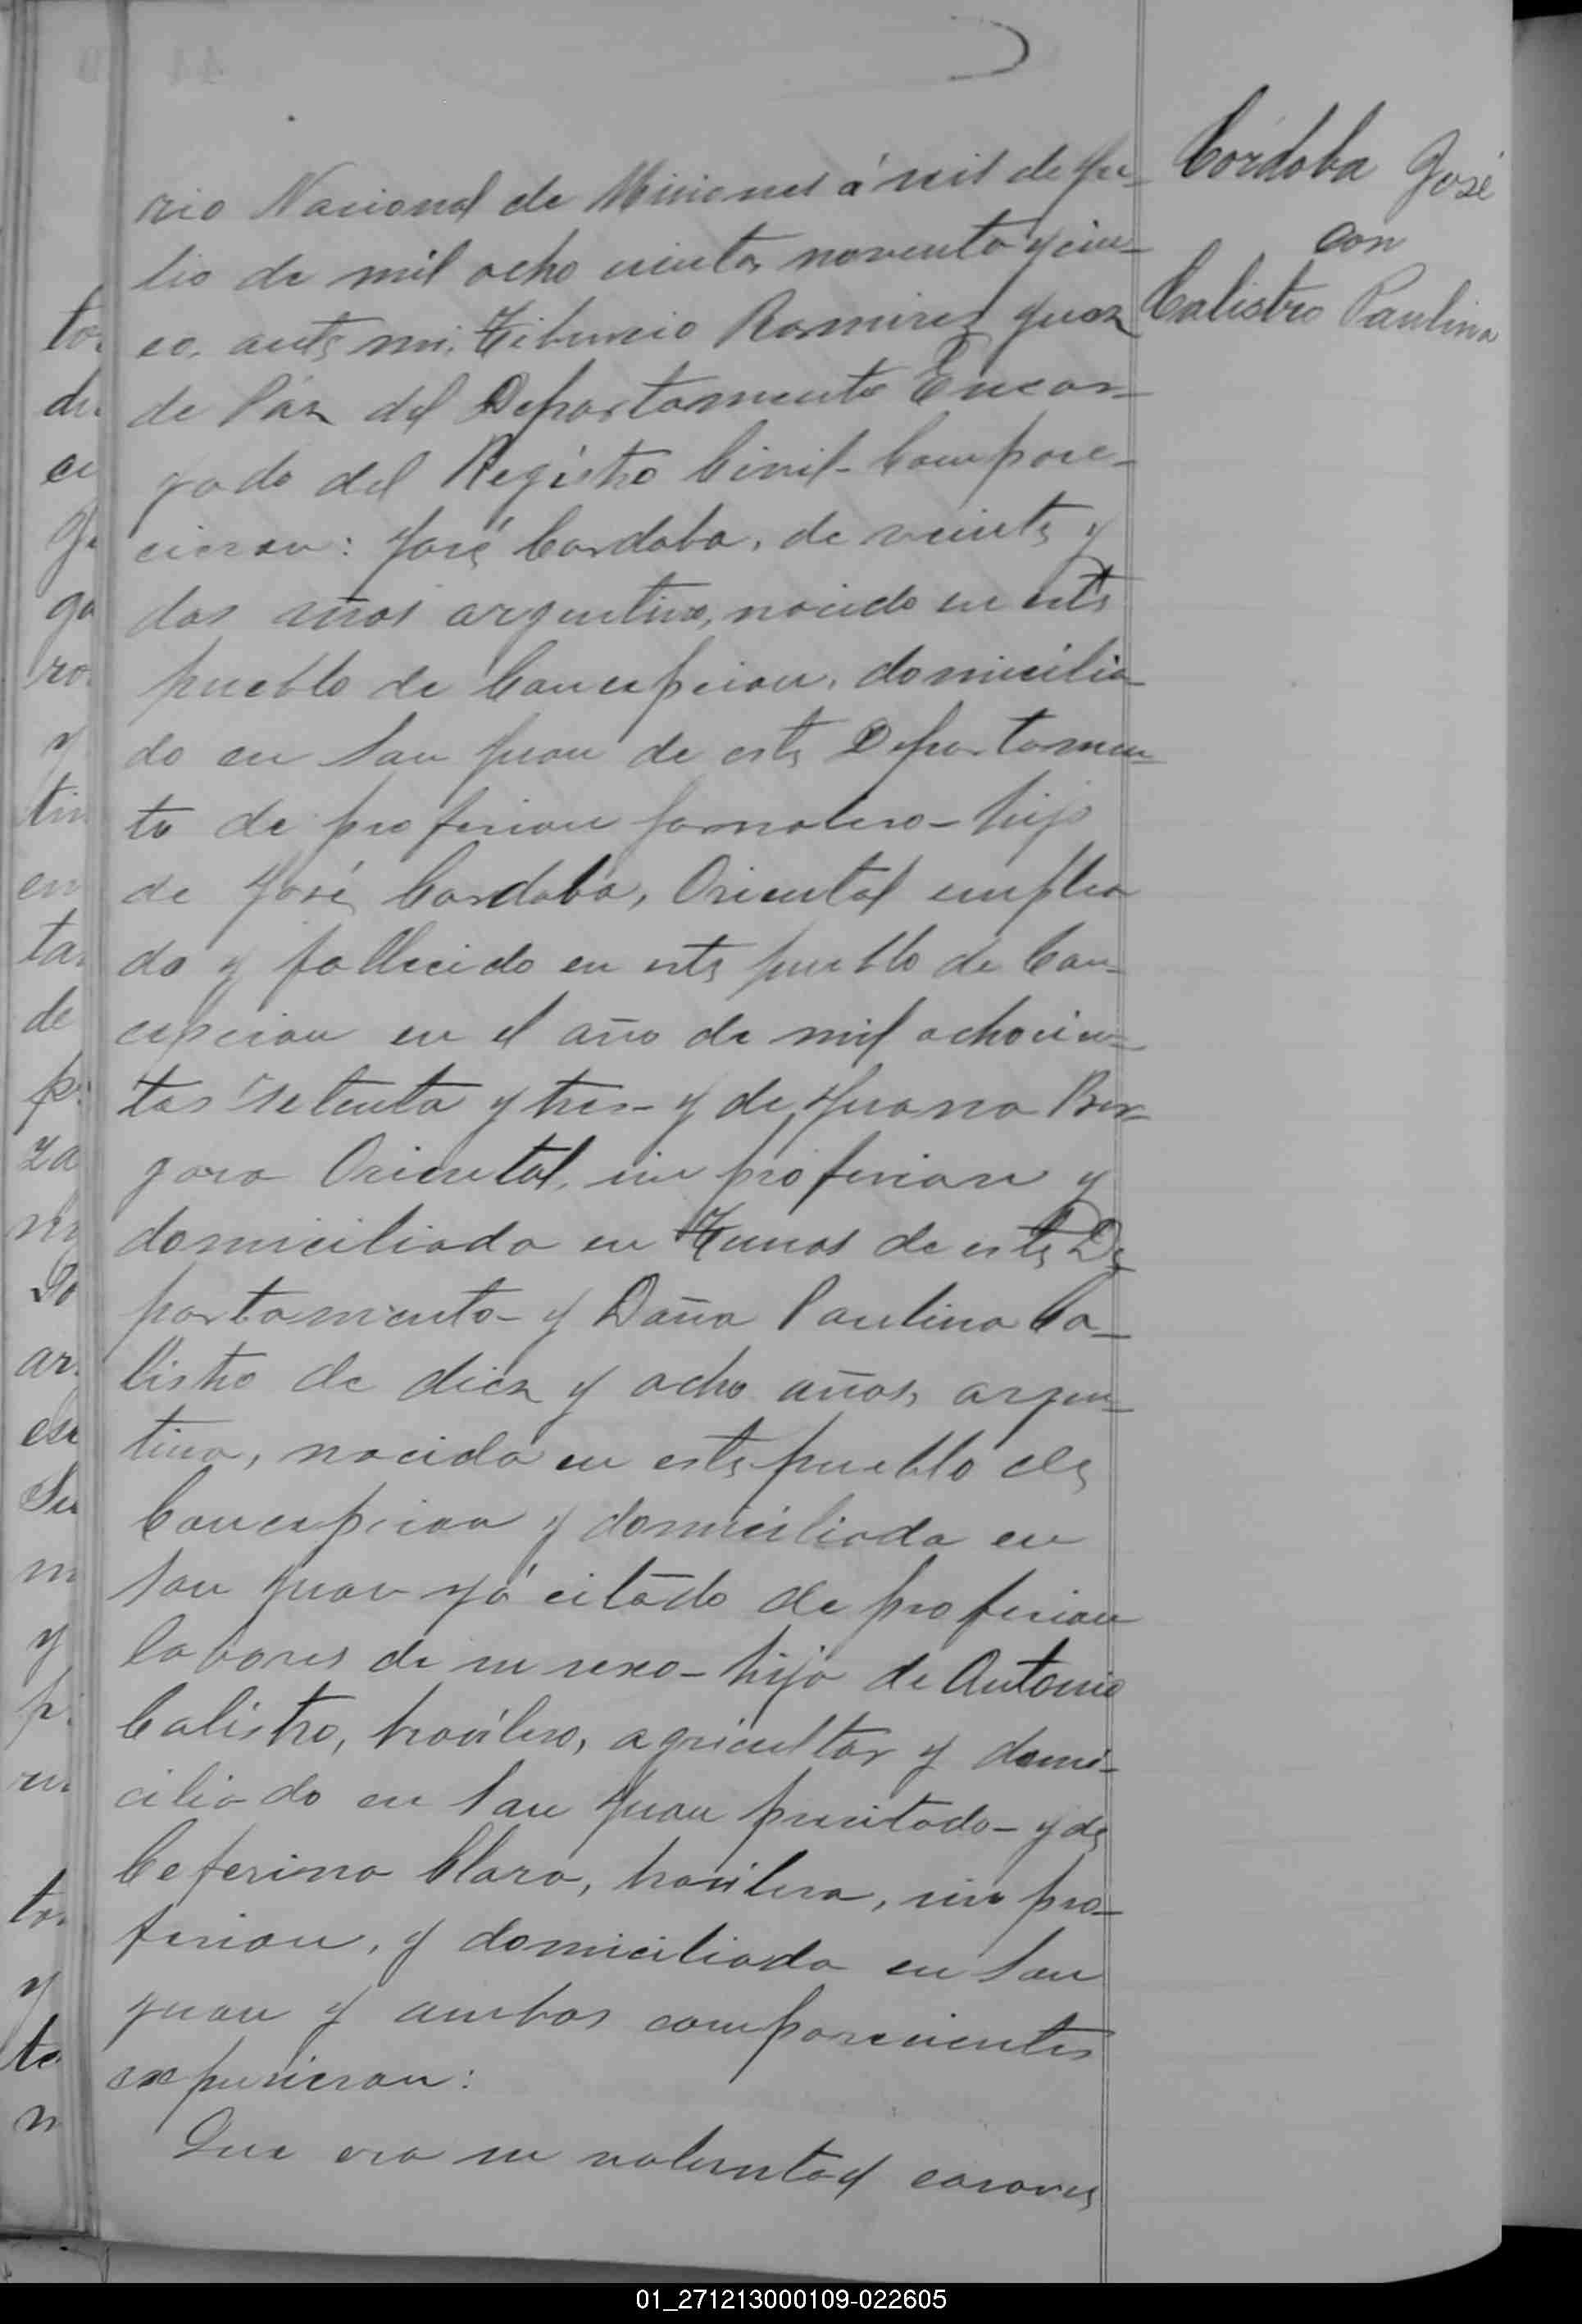 Córdoba José
con
Calistro Paulina
rio Nacional de Misiones á seis de Ju-
lio de mil ocho cientos noventa y cin-
co, ante mi, Tiburcio Ramirez Juez
de Páz del Departamento Encar-
gado del Registro Civil - Compare-
cieron: José Cordoba, de veinte y
dos años argentino, nacido en este
pueblo de Concepcion, domicilia-
do en San Juan de este Departamen-
to de profesion jornalero - hijo
de José Cordoba, Oriental emplea
do y fallecido en este pueblo de Con-
cepcion en el año de mil ochocien-
tos setenta y tres - y de Juana Ber-
gara Oriental, sin profesion y
domiciliada en Tunas de este De
partamento - y Doña Paulina Ca-
listro de diez y ocho años, argen-
tina, nacida en este pueblo de
Concepcion y domiciliada en
San Juan yá citado de profesion
labores de su sexo - hija de Antonio
Calistro, brasilero, agricultor y domi-
ciliado en San Juan precitado - y de
Ceferina Clara, brasilera, sin pro-
fesion, y domiciliada en San
Juan y ambos comparecientes
expusieron:
Que era su voluntad casarse
01_271213000109-022605